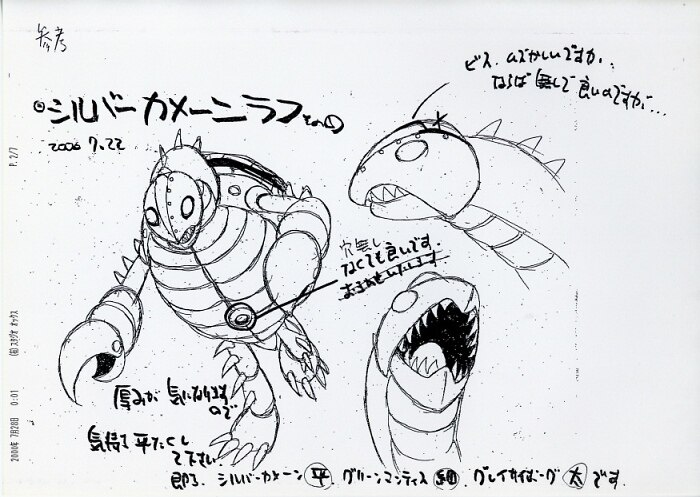 参考
ビス、ムズかしいですか、
ならば 無しで 良いのですが...
◎シルバーカメーンラフ その①
2000 7.22
P. 2/7
穴無し
なくても良いです。
厚みが 気になりますので
気持ち 平たくして下さい。
即ち、シルバーカメーン 平、グリーンマンティス 細、グレイサイボーグ 太 です。
(有)スタジオ オックス
2000年 7月28日 0:01